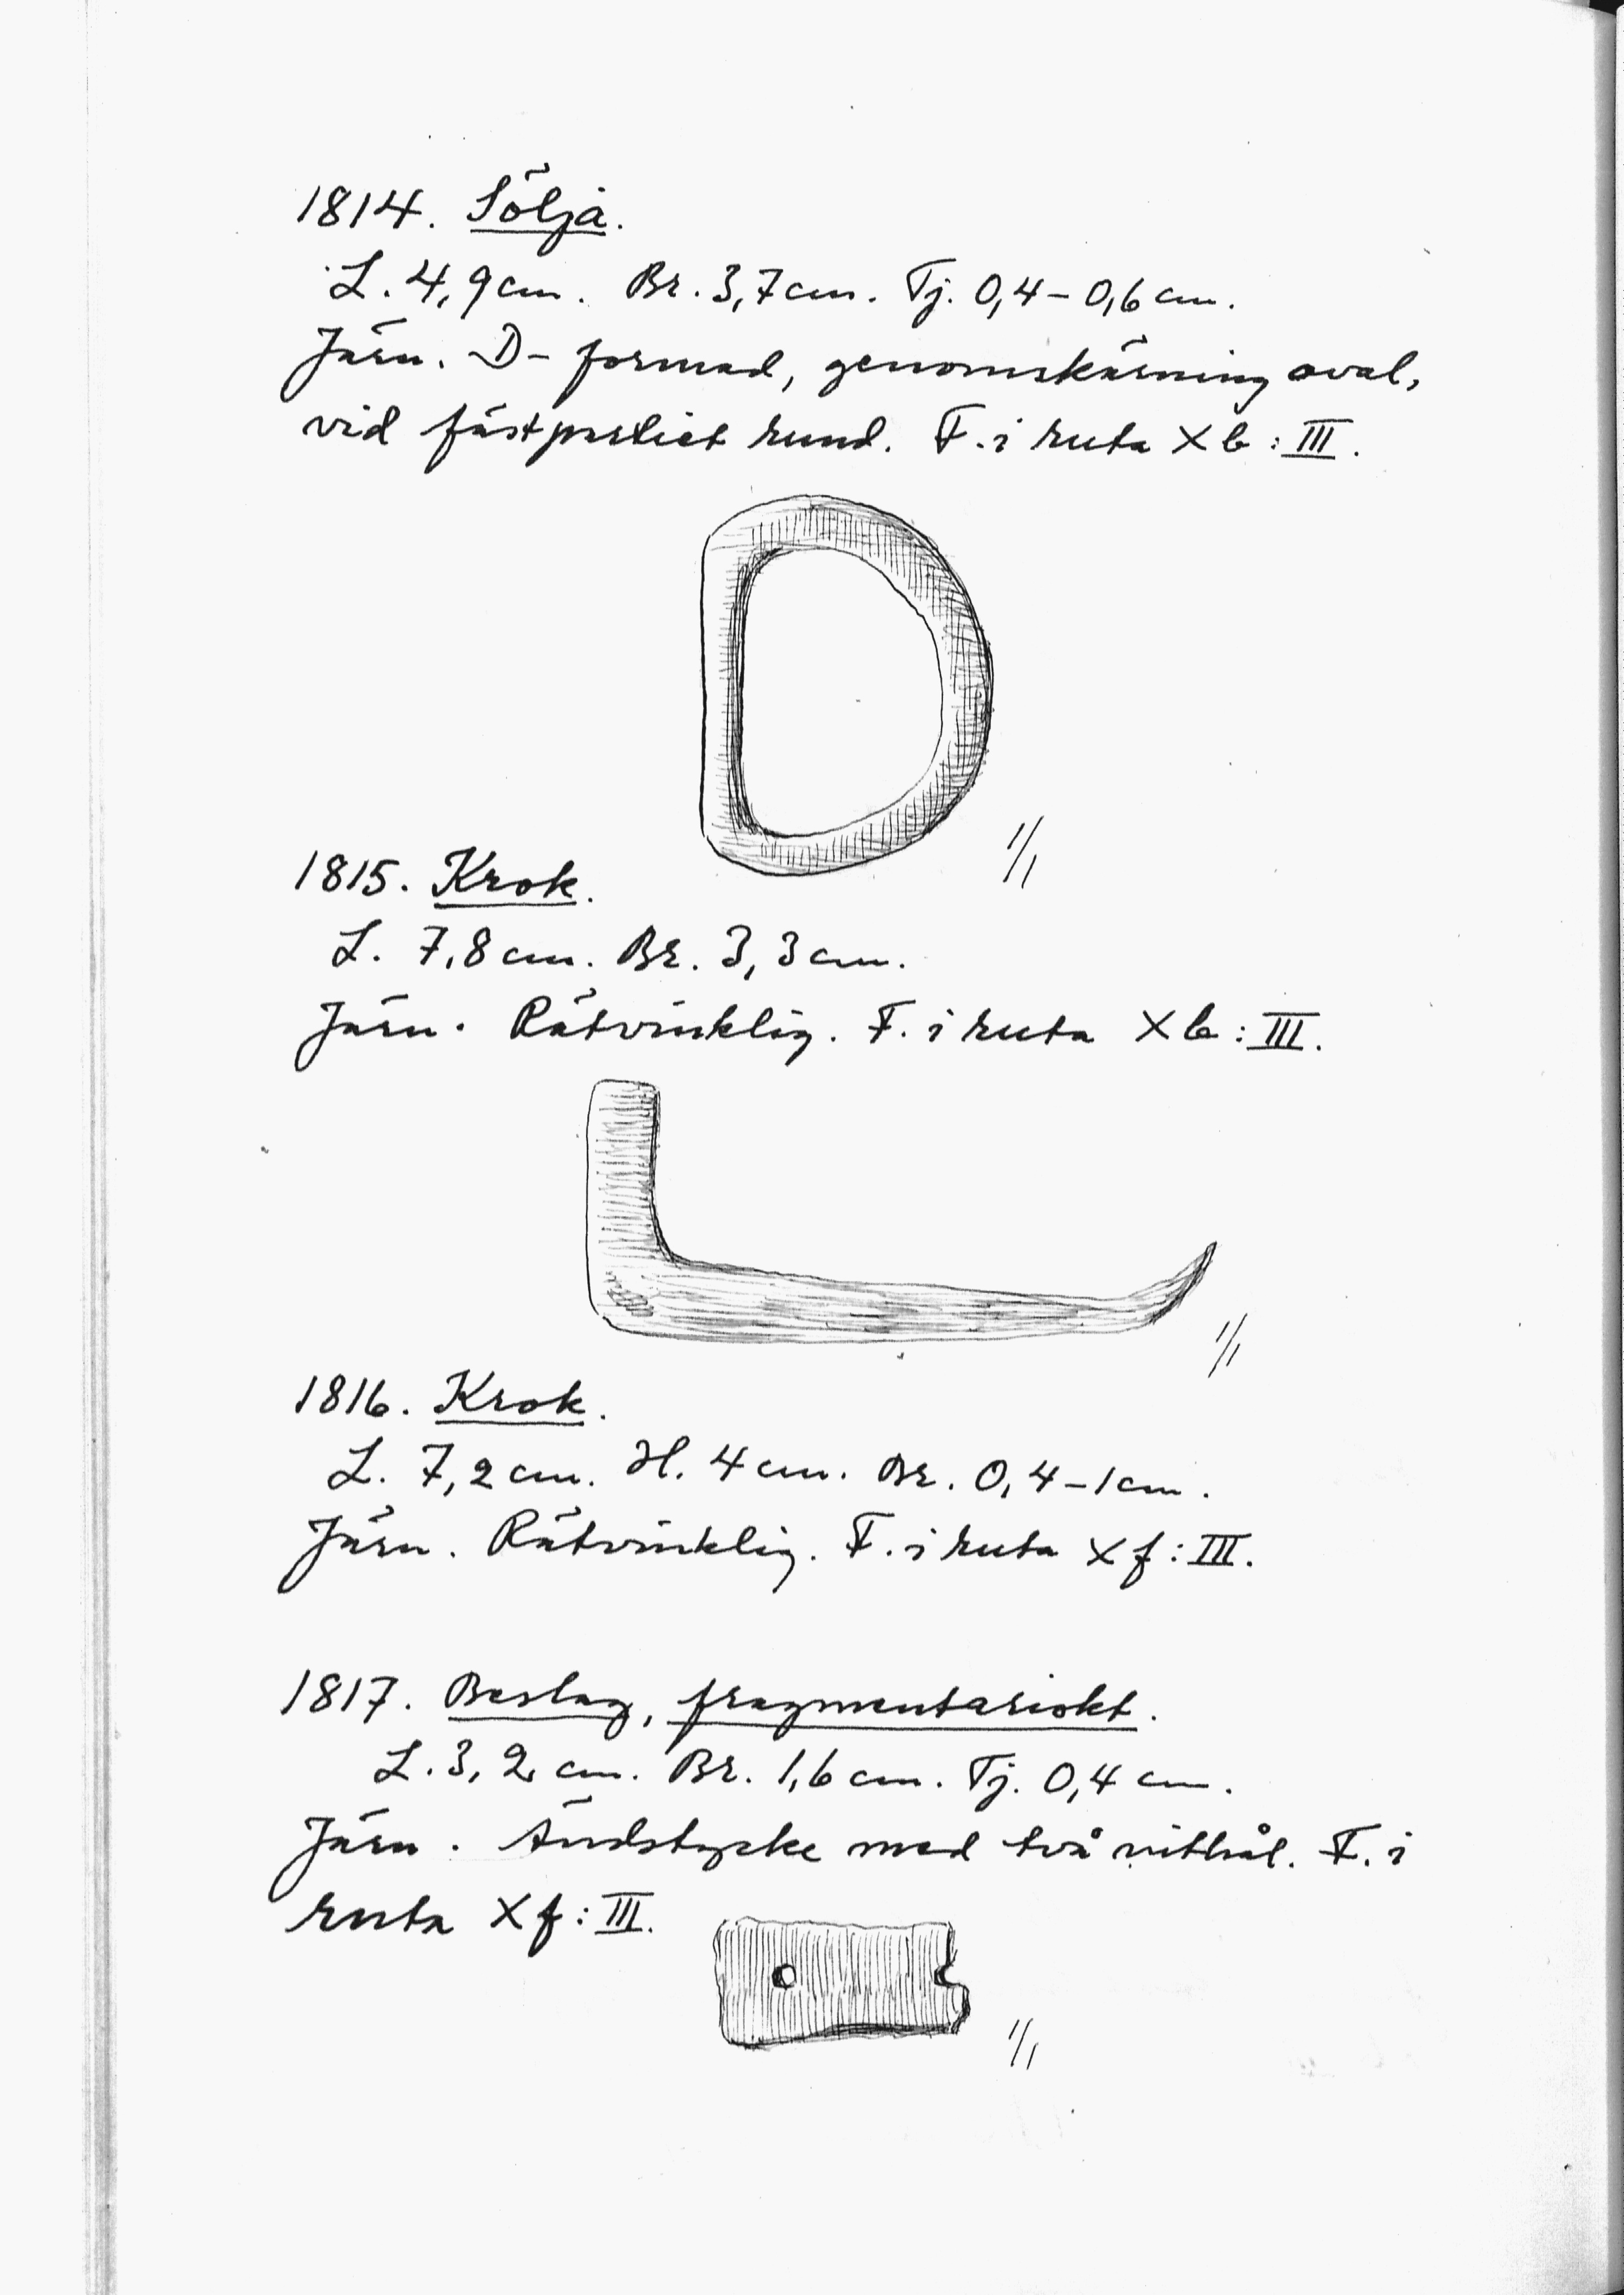 1814. Sölja.
L. 4,9 cm. Br. 3,7 cm. Tj. 0,4 – 0,6 cm.
Järn. D- formad, genomskärning oval,
vid fästpartiet rund. F. i ruta X b : III.
1/1
1815. Krok.
L. 7,8 cm. Br. 3,3 cm.
Järn. Rätvinklig. F. i ruta X b : III.
1/1
1816. Krok.
L. 7,2 cm. H. 4 cm. Br. 0,4 – 1 cm.
Järn. Rätvinklig. F. i ruta X f : III.
1817. Beslag, fragmentariskt.
L. 3,2 cm. Br. 1,6 cm. Tj. 0,4 cm.
Järn. Ändstycke med två nithål. F. i
ruta X f : III.
1/1